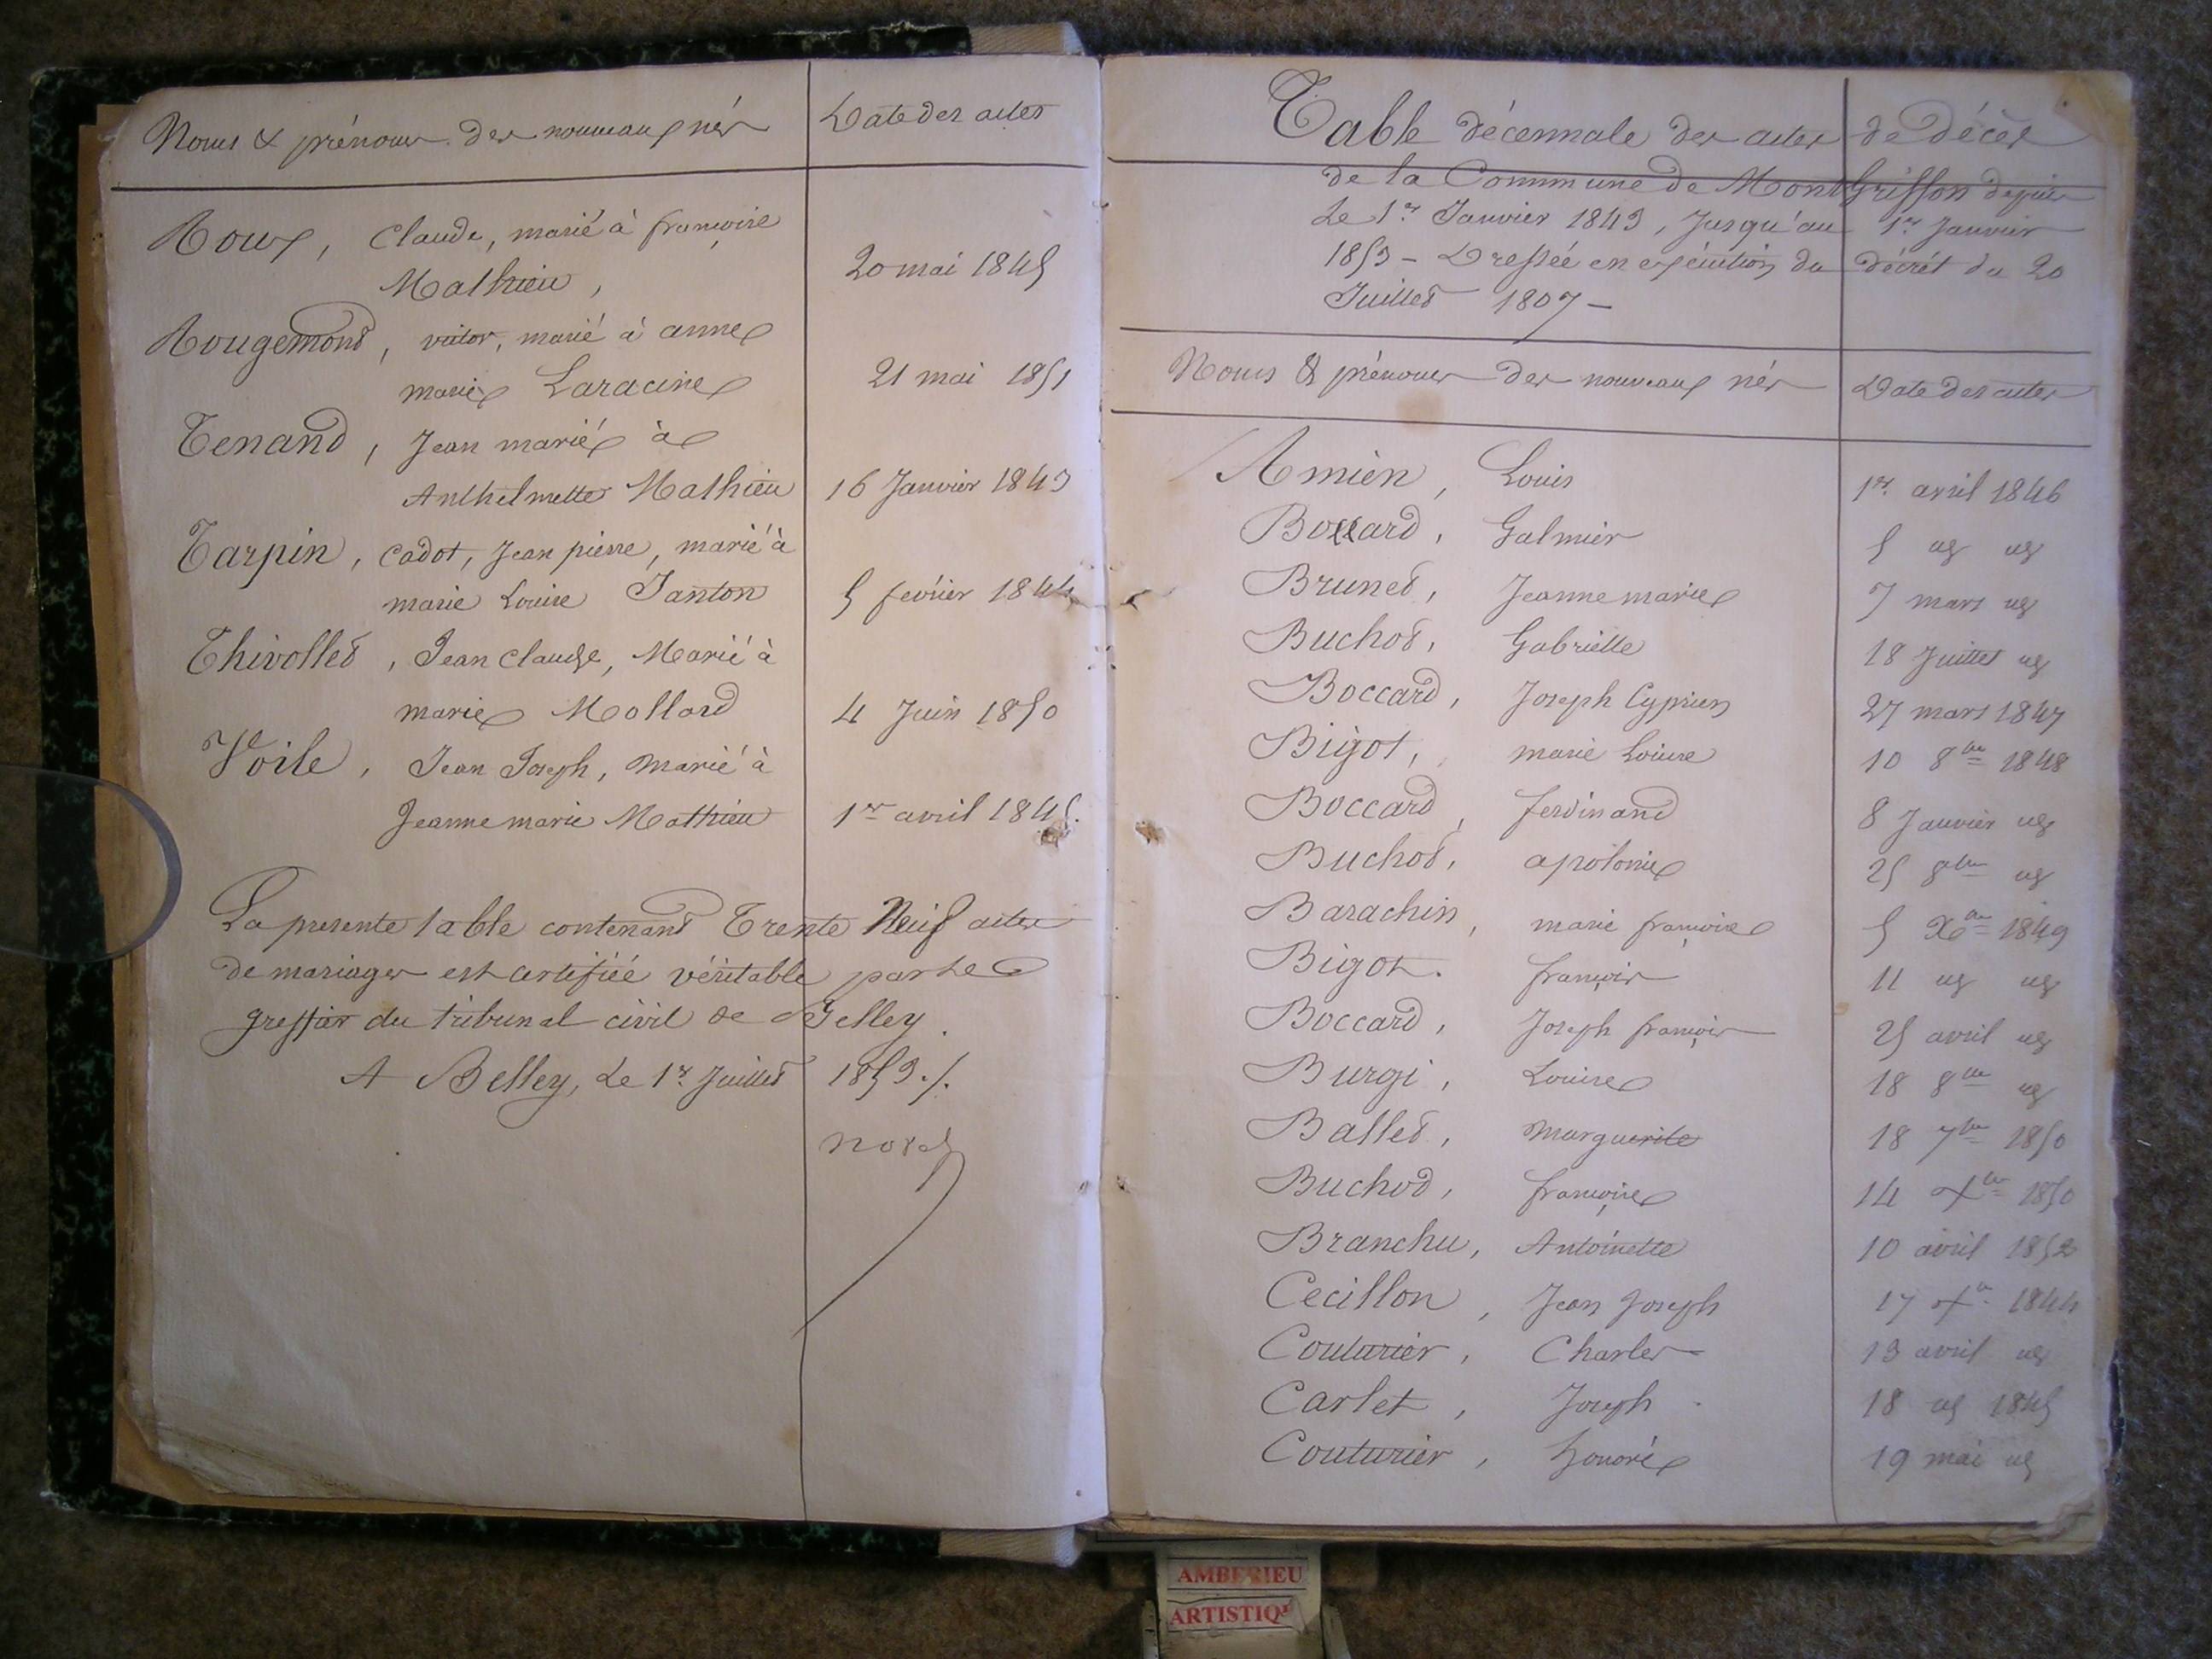 Noms & prénoms des nouveaux nés Date des actes
Roux, Claude, marié à françoise
Mathieu, 20 mai 1845
Rougemond, victor, marié à anne
marie Laracine 21 mai 1851
Tenand, Jean marié à
Anthelmette Mathieu 16 Janvier 1843
Tarpin, Cadot, Jean pierre, marié à
marie Louise Janton 5 février 1844
Thivollet, Jean Claude, Marié à
marie Mollard 4 Juin 1850
Voile, Jean Joseph, marié à
Jeanne marie Mathieu 1er avril 1845.
La presente table contenant Trente Neuf actes
de mariages est certifiée véritable par Le
greffier du tribunal civil de Belley.
A Belley, Le 1er Juillet 1853 ./.
Table décennale des actes de décès
de la Commune de MontGriffon depuis
Le 1er Janvier 1843, Jusqu'au 1er Janvier
1853 - Dressée en exécution du décrét du 20
Juillet 1807 -
Noms & prénoms des nouveaux nés Date des actes
Amien, Louis 1er avril 1846
Boccard, Galmier 5 ug ug
Brunet, Jeanne marie 7 mars ug
Buchot, Gabrielle 18 Juillet ug
Boccard, Joseph Cyprien 27 mars 1847
Bigot, marie Louise 10 8bre 1848
Boccard, ferdinand 8 Janvier ug
Buchot, apolonie 25 8bre ug
Barachin, marie françoise 5 Xbre 1849
Bigot. françois 11 ug ug
Boccard, Joseph françois 25 avril ug
Burgi, Louise 18 8bre ug
Ballet, marguerite 18 7bre 1850
Buchod, françoise 14 Xbre 1850
Branchu, Antoinette 10 avril 1852
Cecillon, Jean Joseph 17 Xbre 1844
Couturier, Charles 13 avril ug
Carlet, Joseph 18 ug 1845
Couturier, honoré 19 mai ug
AMBERIEU
ARTISTIQ